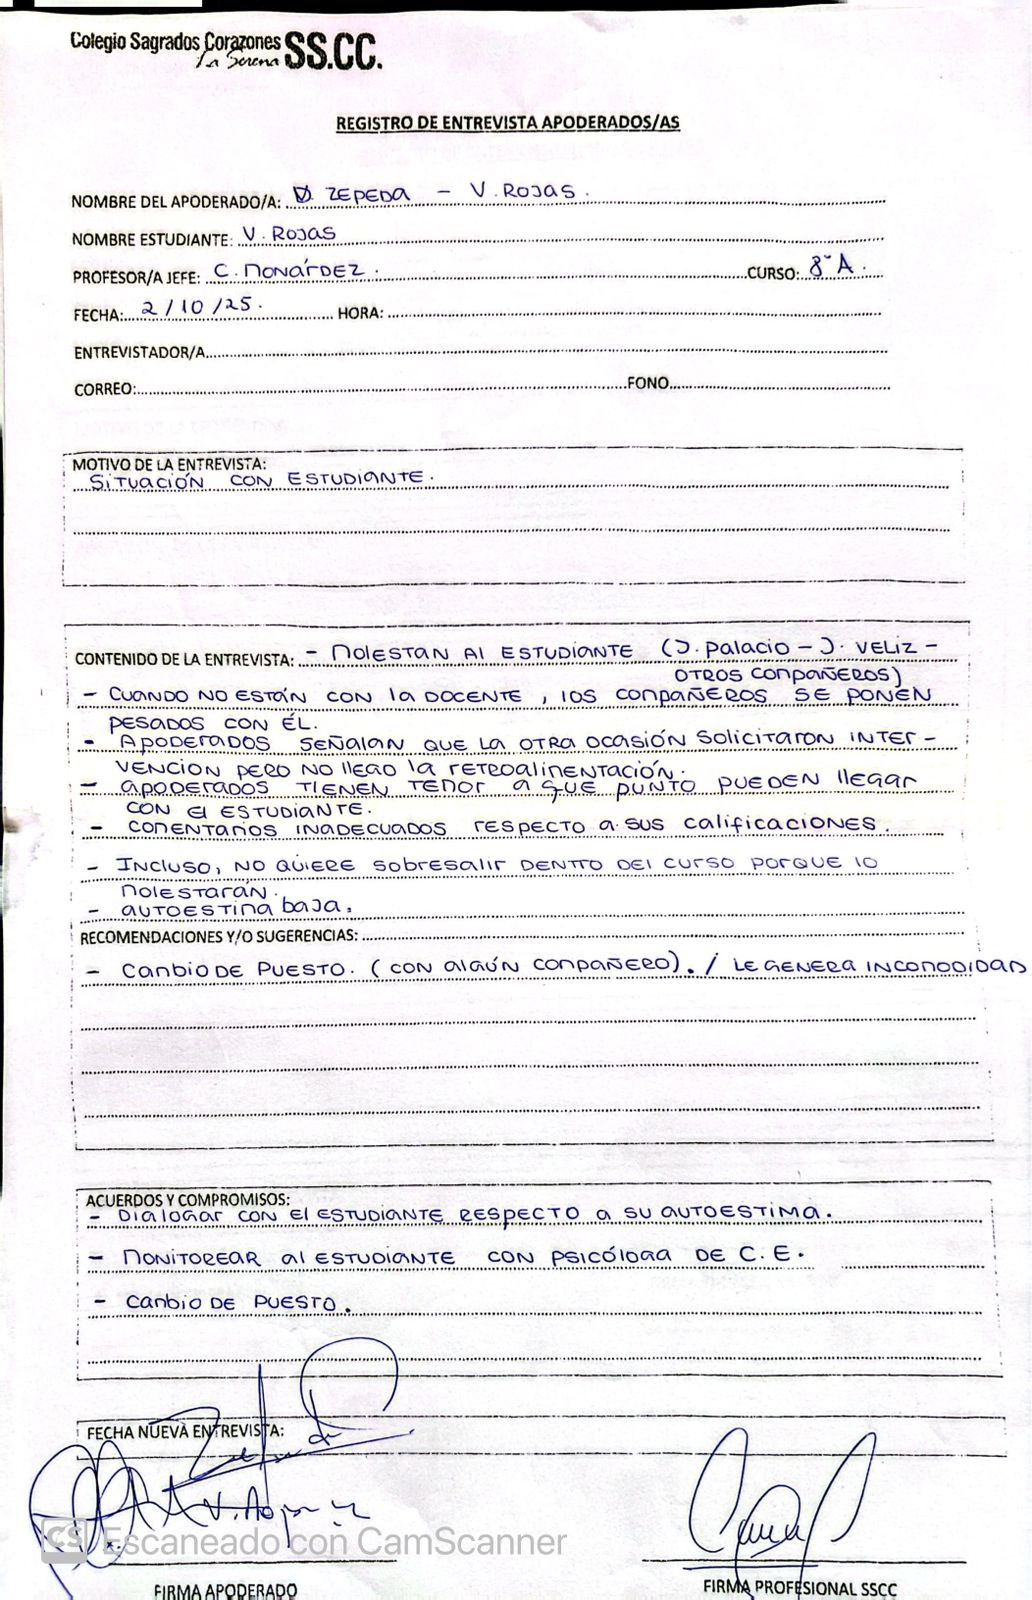 Colegio Sagrados Corazones SS.CC.
La Serena
REGISTRO DE ENTREVISTA APODERADOS/AS
NOMBRE DEL APODERADO/A: D. ZEPEDA - V. ROJAS.
NOMBRE ESTUDIANTE: V. ROJAS
PROFESOR/A JEFE: C. MONÁRDEZ. CURSO: 8°A.
FECHA: 2/10/25. HORA:
ENTREVISTADOR/A
CORREO: FONO
MOTIVO DE LA ENTREVISTA:
SITUACIÓN CON ESTUDIANTE.
CONTENIDO DE LA ENTREVISTA: - MOLESTAN AL ESTUDIANTE (J. PALACIO - J. VELIZ -
OTROS COMPAÑEROS)
- CUANDO NO ESTÁN CON LA DOCENTE, LOS COMPAÑEROS SE PONEN
PESADOS CON ÉL.
- APODERADOS SEÑALAN QUE LA OTRA OCASIÓN SOLICITARON INTER-
VENCION PERO NO LLEGO LA RETROALIMENTACIÓN.
- APODERADOS TIENEN TEMOR A QUE PUNTO PUEDEN LLEGAR
CON EL ESTUDIANTE.
- COMENTARIOS INADECUADOS RESPECTO A SUS CALIFICACIONES.
- INCLUSO, NO QUIERE SOBRESALIR DENTRO DEL CURSO PORQUE LO
MOLESTARÁN.
- AUTOESTIMA BAJA.
RECOMENDACIONES Y/O SUGERENCIAS:
- CAMBIO DE PUESTO. (CON ALGÚN COMPAÑERO). / LE GENERA INCOMODIDAD
ACUERDOS Y COMPROMISOS:
- DIALOGAR CON EL ESTUDIANTE RESPECTO A SU AUTOESTIMA.
- MONITOREAR AL ESTUDIANTE CON PSICÓLOGA DE C.E.
- CAMBIO DE PUESTO.
FECHA NUEVA ENTREVISTA:
CS Escaneado con CamScanner
FIRMA APODERADO FIRMA PROFESIONAL SSCC